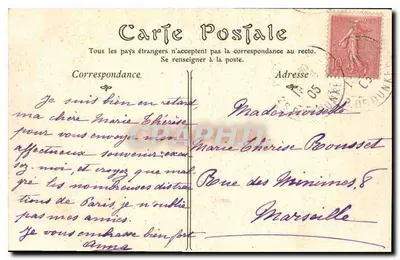 Carte Postale
Tous les pays étrangers n'acceptent pas la correspondance au recto.
Se renseigner à la poste.
Correspondance
Adresse
Je suis bien en retard
ma chère Marie Thérèse
pour vous envoyer mon
affectueux souvenir. excu
sez-moi et croyez que mal
gré les nombreuses distrac
tions de Paris, je n'oublie
pas mes amies.
Je vous embrasse bien fort
Anna
Mademoiselle
Marie Thérèse Rousset
Rue des Minimes, 8
Marseille
05